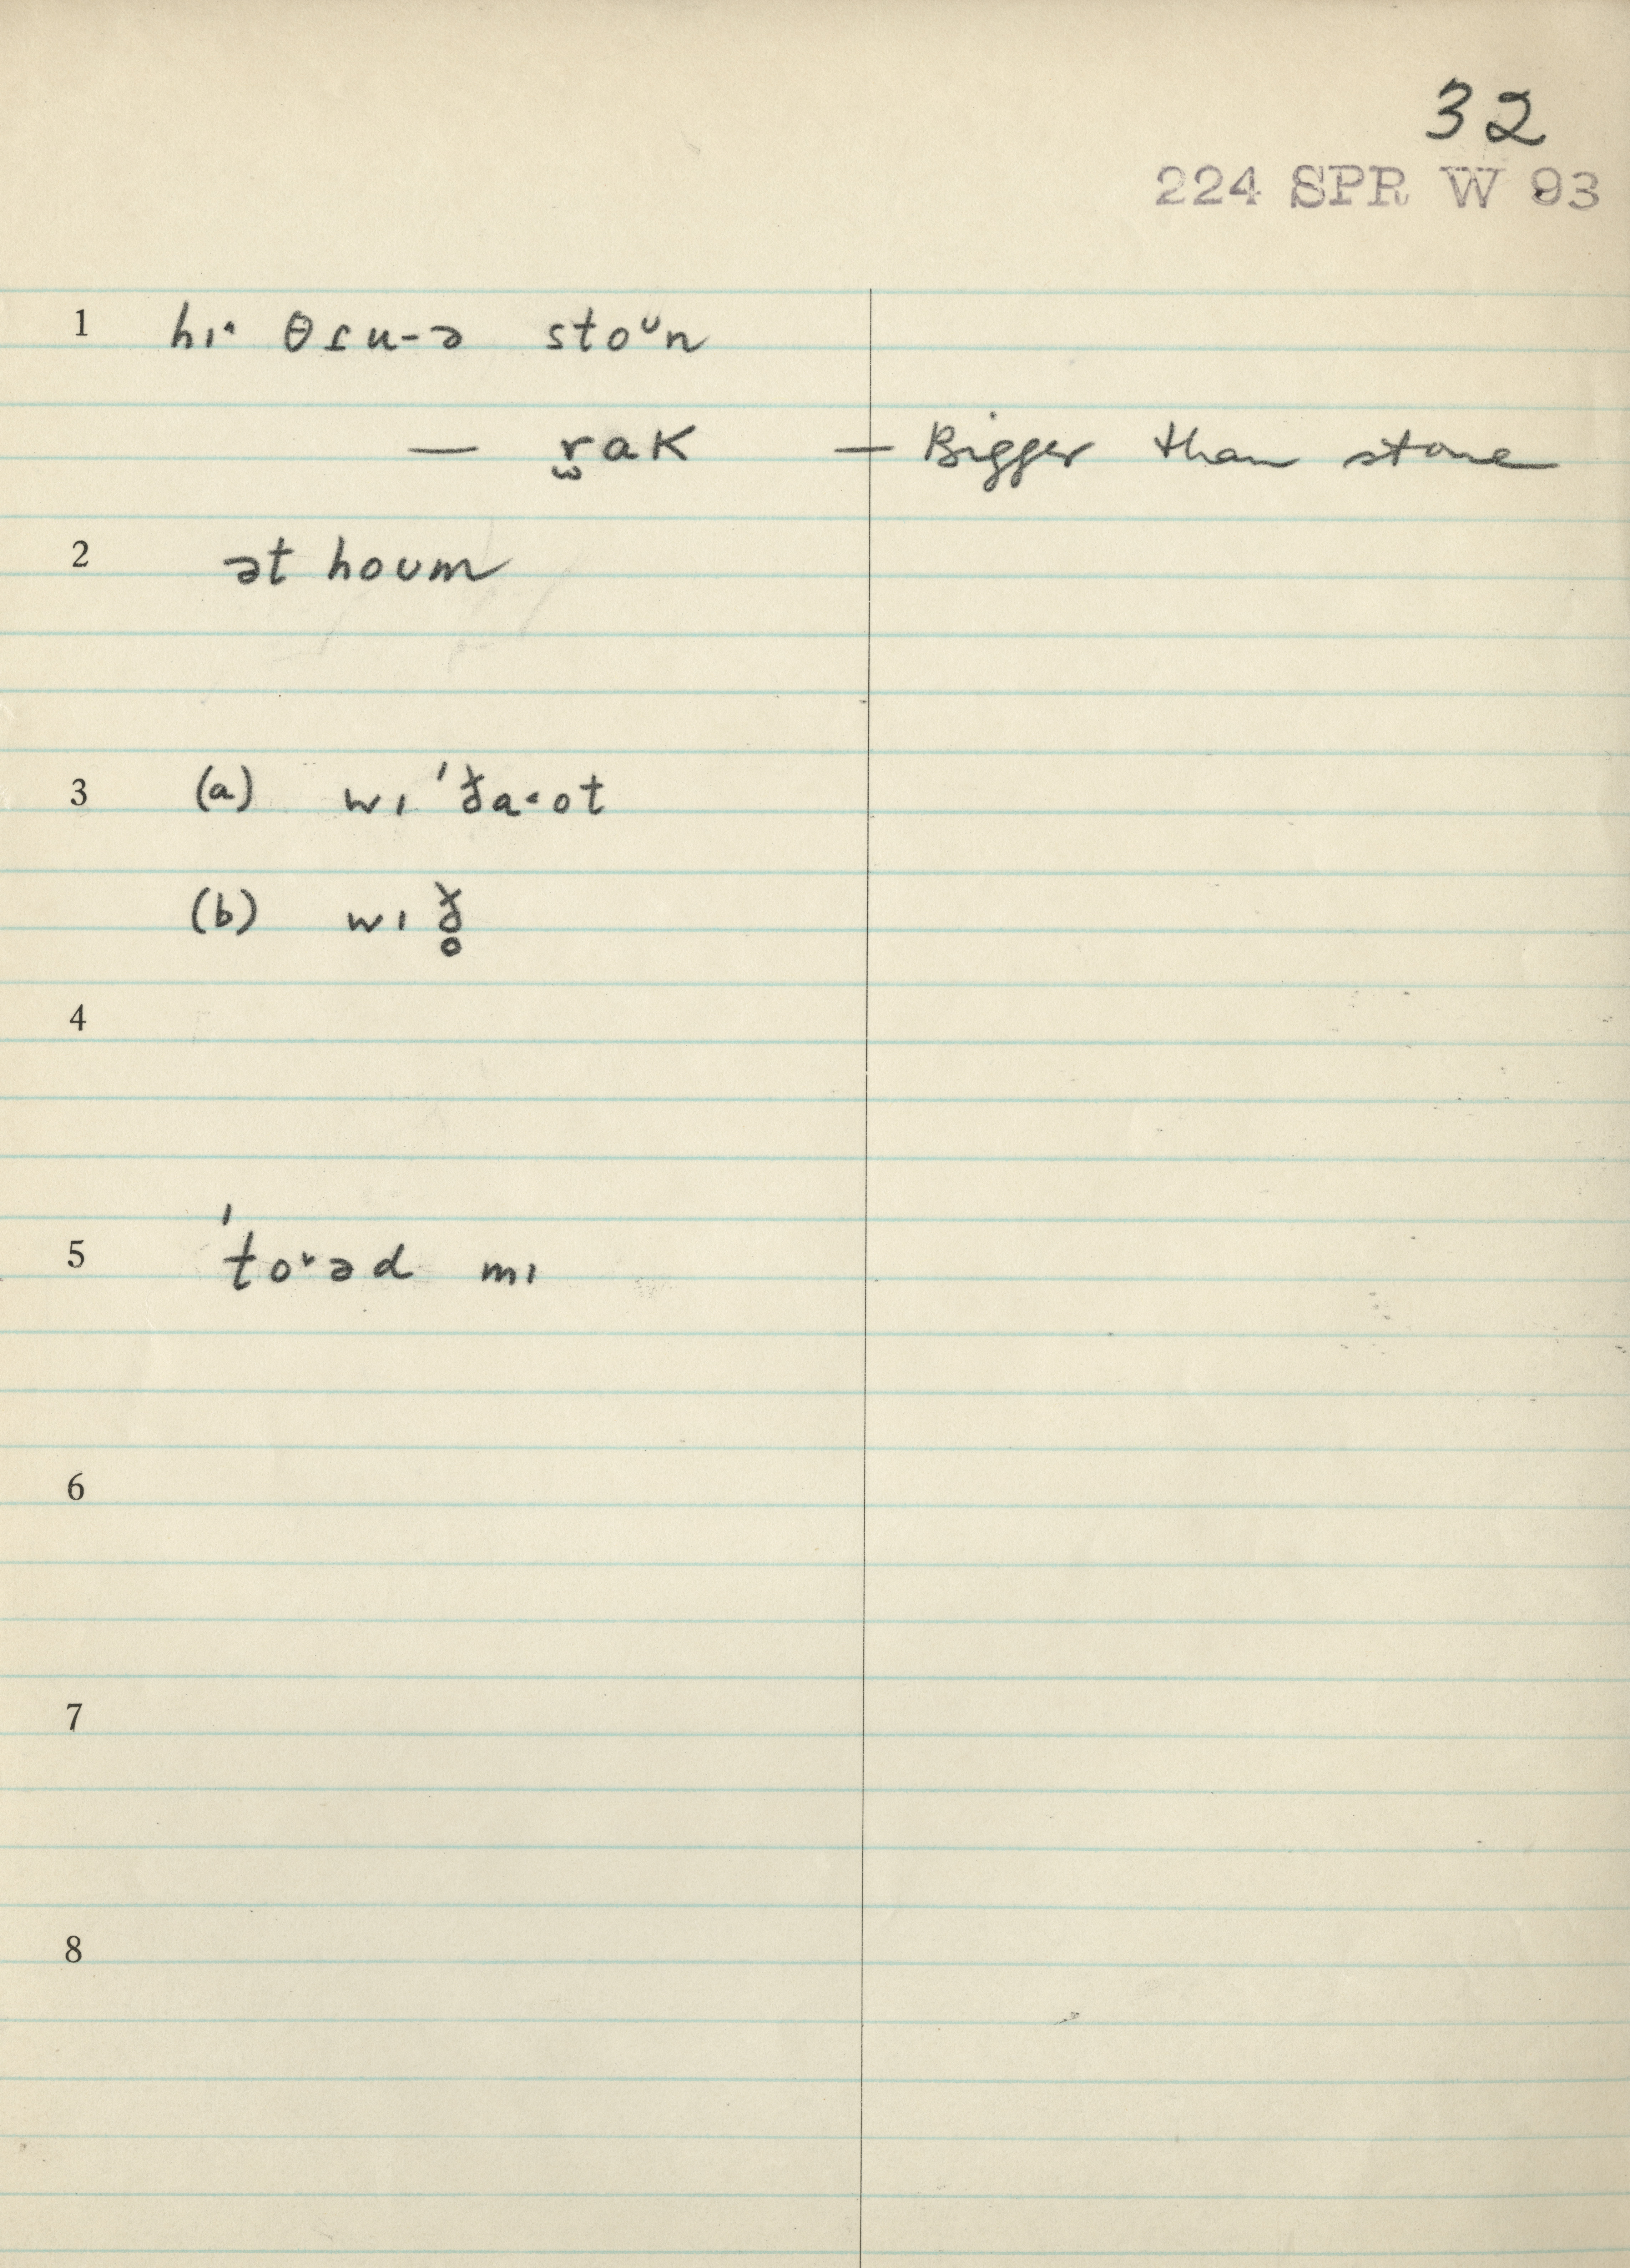 32
224 SPR W 93
1 hɪˑ θɾu-ə stoᶷn
— r̫ak — Bigger than stone
2 ət houm
3 (a) wɪ ˈðaˑot
(b) wɪ ð̥
4
5 ˈtoˑəd mɪ
6
7
8